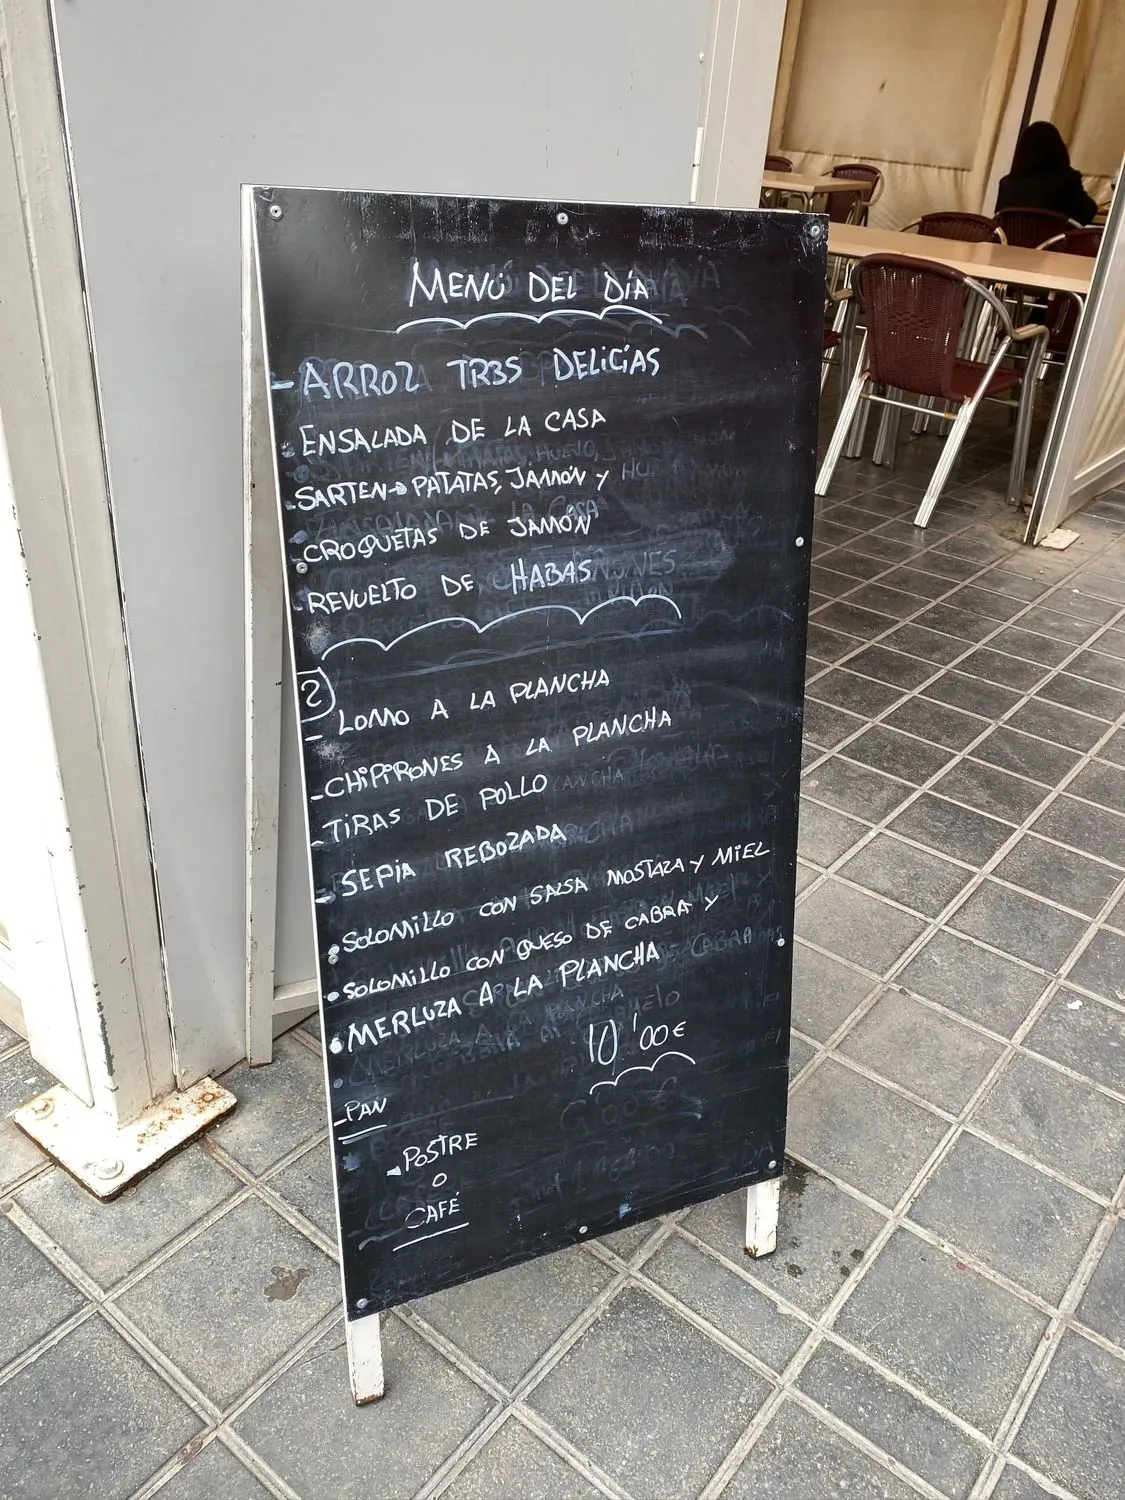 MENÚ DEL DÍA
- ARROZ TR3S DELICIAS
• ENSALADA DE LA CASA
- SARTEN → PATATAS, JAMÓN Y
• CROQUETAS DE JAMÓN
• REVUELTO DE HABAS
2
- LOMO A LA PLANCHA
- CHIPIRONES A LA PLANCHA
- TIRAS DE POLLO
- SEPIA REBOZADA
• SOLOMILLO CON SALSA MOSTAZA Y MIEL
• SOLOMILLO CON QUESO DE CABRA Y
• MERLUZA A LA PLANCHA
10'00€
- PAN
- POSTRE
O
CAFÉ